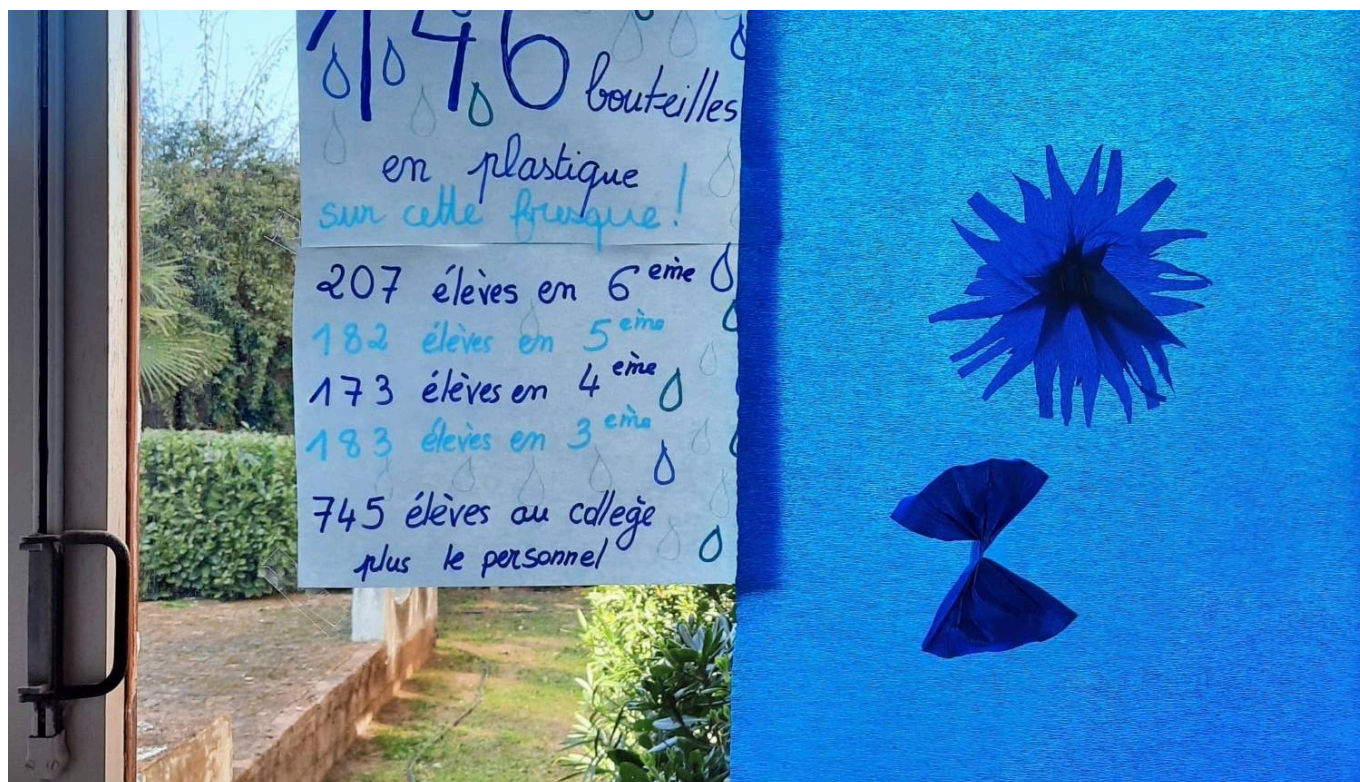 146 bouteilles
en plastique
sur cette fresque !
207 élèves en 6 eme
182 élèves en 5 eme
173 élèves en 4 eme
183 élèves en 3 eme
745 élèves au collège
plus le personnel